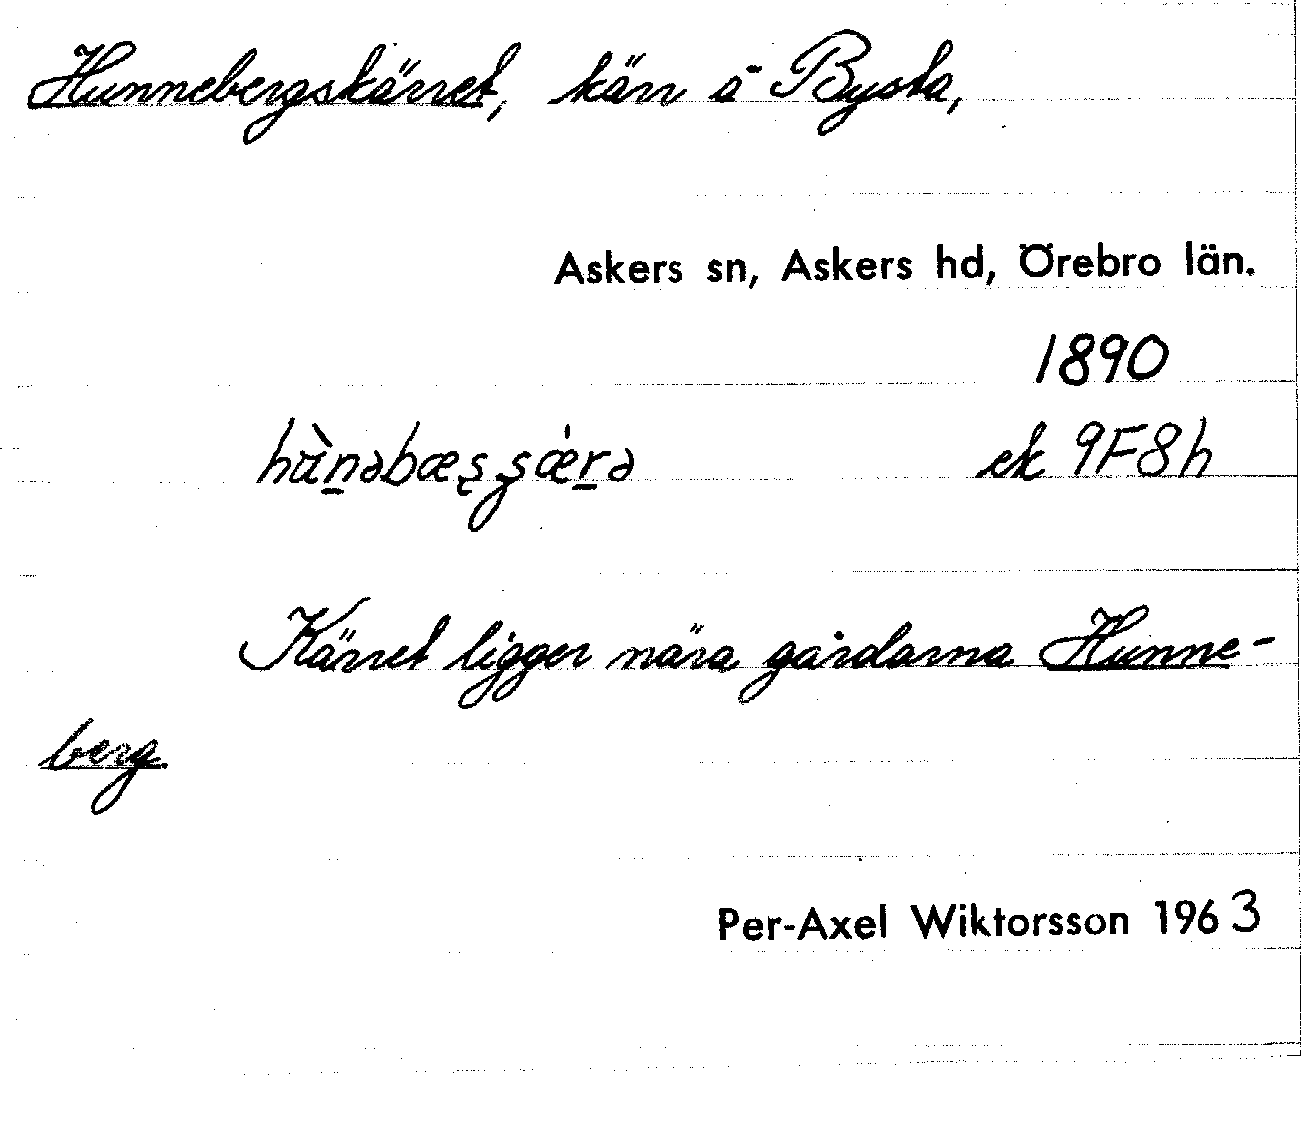 Hunnebergskärret, kärr å Bysta,
Askers sn, Askers hd, Örebro län.
1890
hùnəbæșșæ̀rə ek 9F8h
Kärret ligger nära gårdarna Hunne-
berg
Per-Axel Wiktorsson 1963